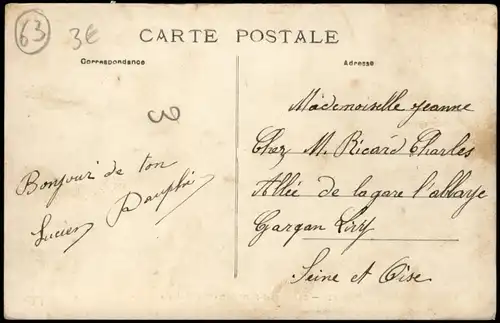 63
3€
CARTE POSTALE
Correspondance
Adresse
Mademoiselle Jeanne
Chez M. Ricard Charles
Allée de la gare l'abbaye
Gargan Livry
Seine et Oise
Bonjour de ton
Lucien Dauphi